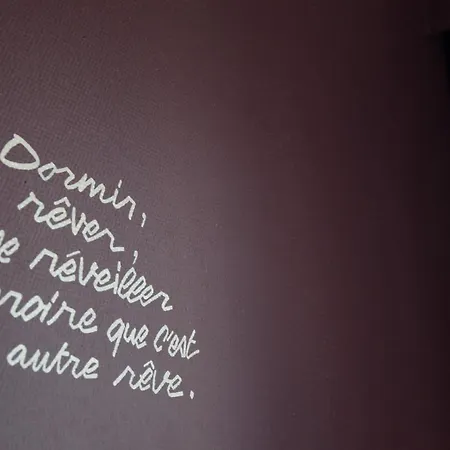 Dormir,
rêver,
se réveiller
croire que c'est
autre rêve.